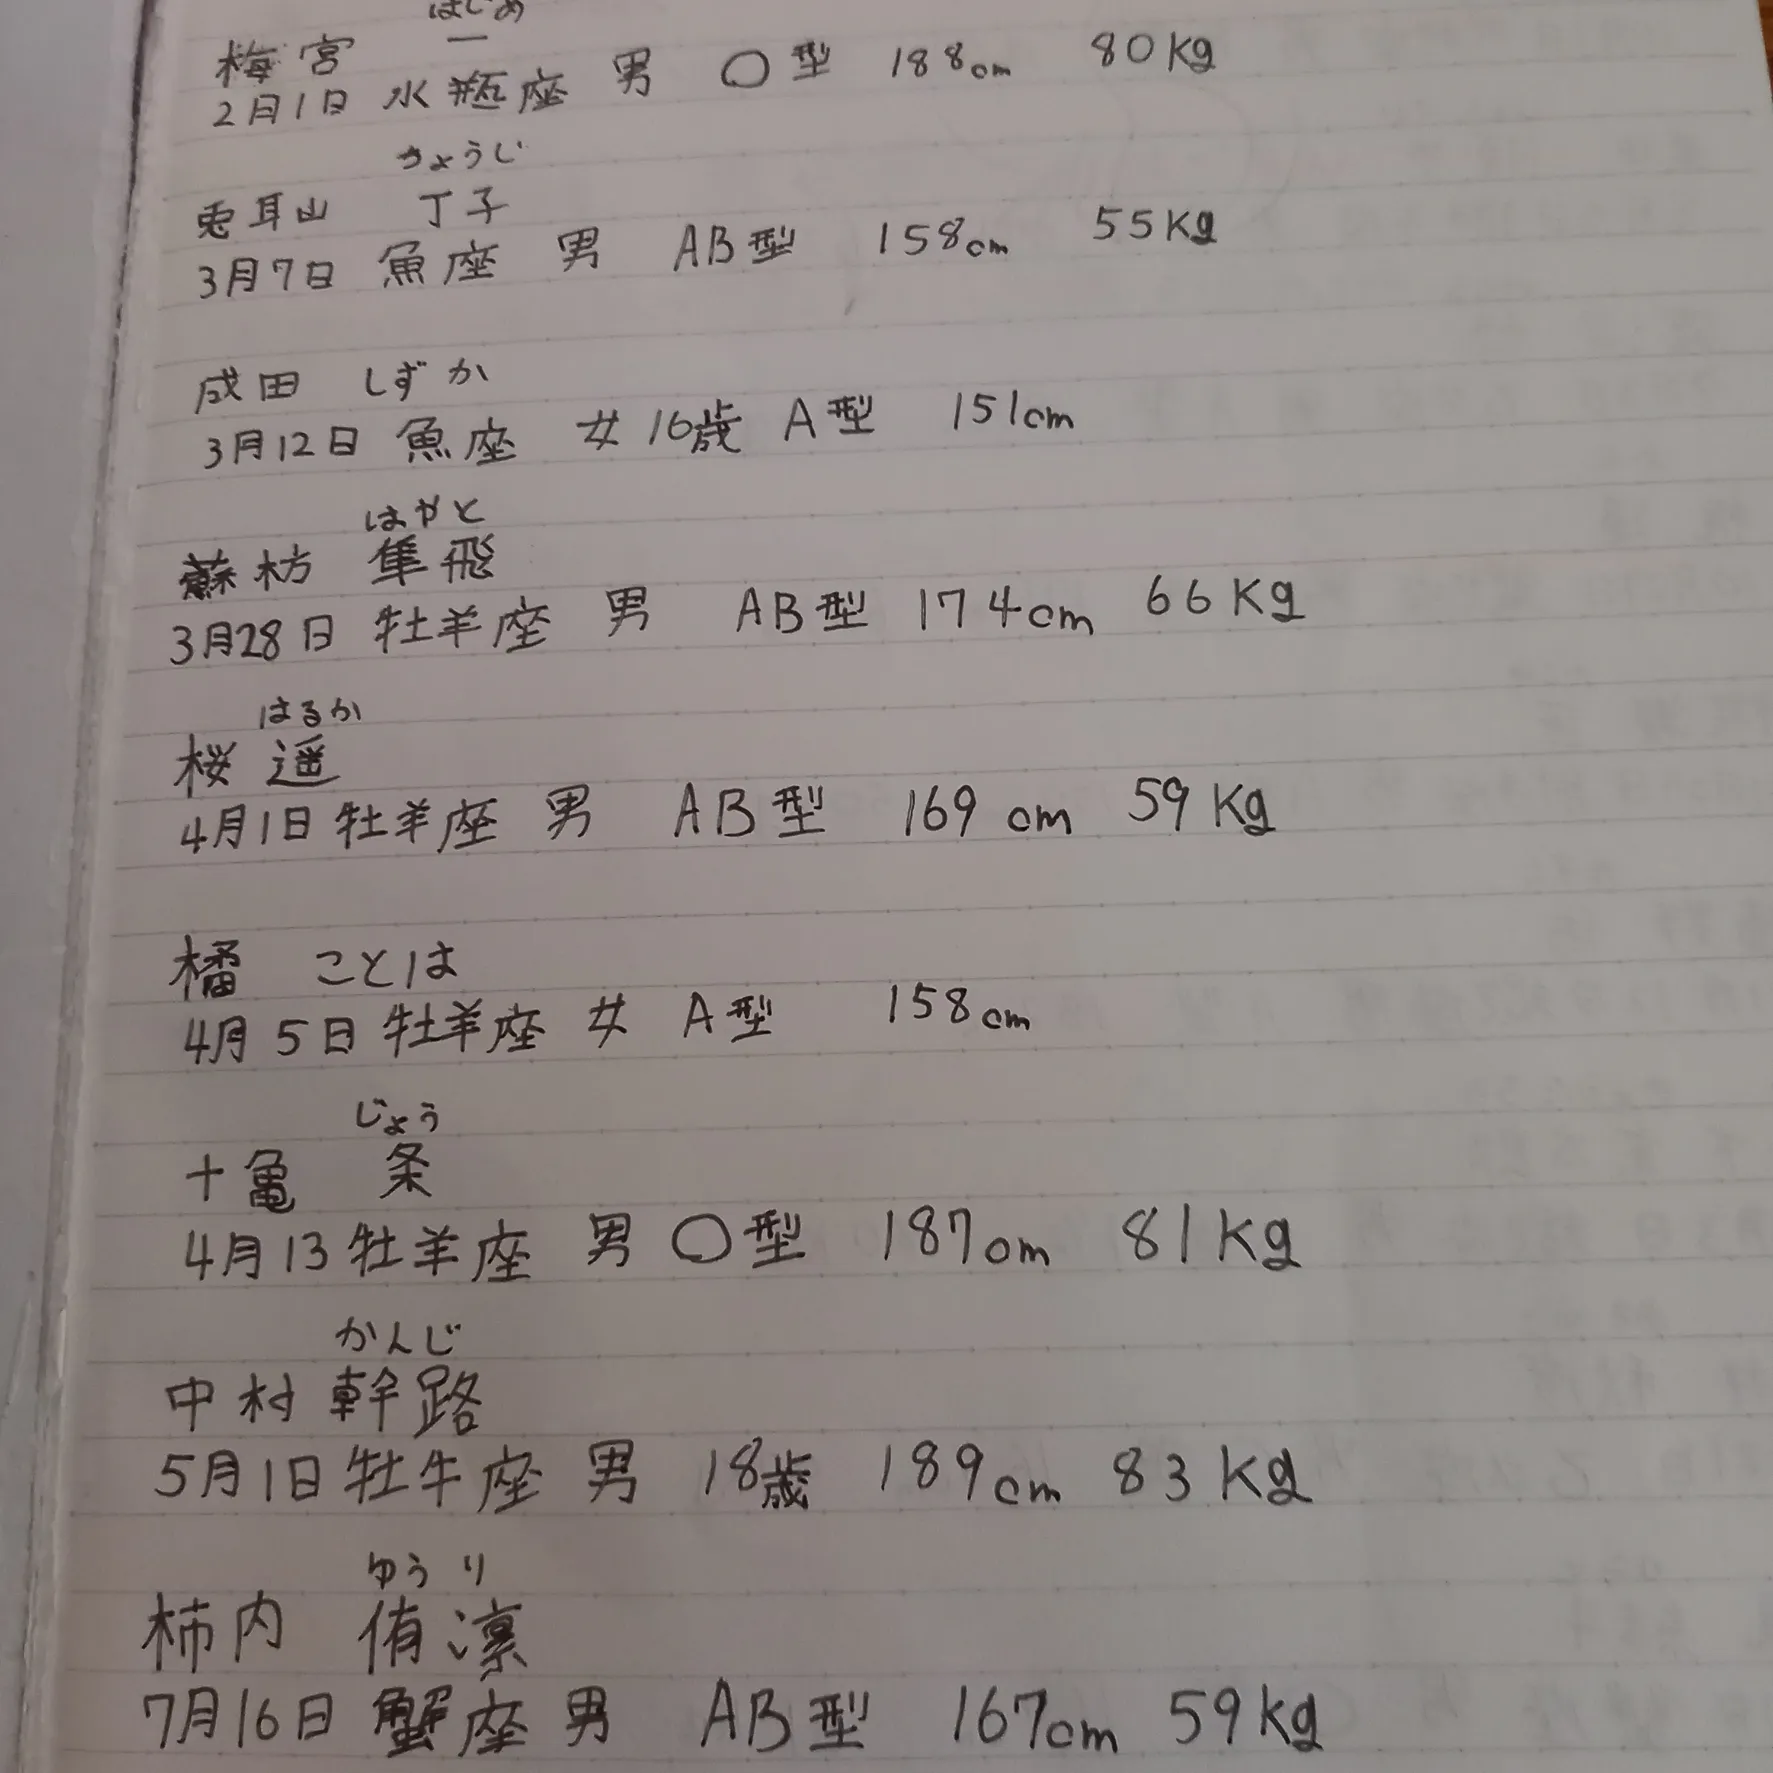 はじめ
梅宮 一
2月1日 水瓶座 男 O型 188cm 80Kg
ちょうじ
兎耳山 丁子
3月7日 魚座 男 AB型 158cm 55Kg
成田 しずか
3月12日 魚座 女 16歳 A型 151cm
はやと
蘇枋 隼飛
3月28日 牡羊座 男 AB型 174cm 66Kg
はるか
桜 遥
4月1日 牡羊座 男 AB型 169cm 59Kg
橘 ことは
4月5日 牡羊座 女 A型 158cm
じょう
十亀 条
4月13 牡羊座 男 O型 187cm 81Kg
かんじ
中村 幹路
5月1日 牡牛座 男 18歳 189cm 83Kg
ゆうり
柿内 侑凛
7月16日 蟹座 男 AB型 167cm 59Kg